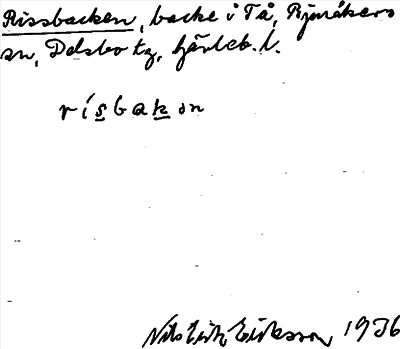 Rissbacken, backe i Tå, Bjuråkers
sn, Delsbo tg, Gävleb. l.
rísbakən
Nils Erik Eriksson, 1936